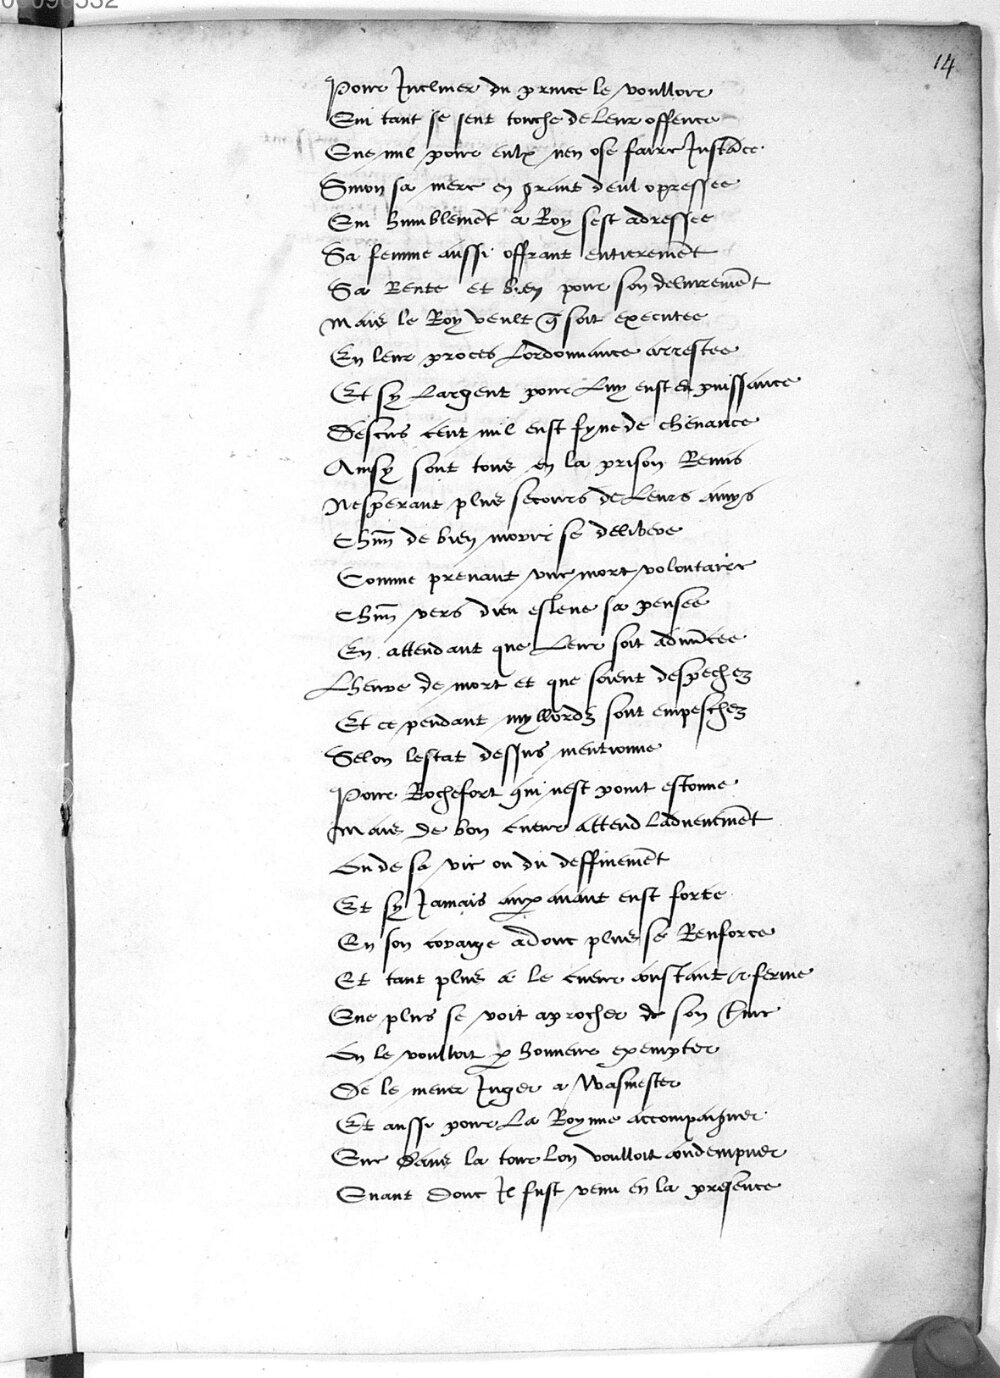 00098332
14
Pour Incliner du prince le voulloir
Qui tant se sent touche de leur offence
Que nul pour eulx nen ose faire Instãce
Sinon sa mere en grant deul opressee
Qui humblemẽt a Roy sest adressee
Sa femme aussi offrant entieremẽt
Sa Rente et bien pour son deliuremẽt
Mais le Roy veult q̃ soit executee
En leur proces Lordonnance arrestee
Et sy Largent pour Luy eust en puissance
Descus cent mil eust fyne de cheuance
Ainsy sont tous en la prison Remis
Nesperant plus secours de Leurs amys
Chũn de bien mourir se delibere
Comme prenant vne mort volontaire
Chũn vers dieu esleue sa pensee
En attendant que Leur soit adnũcee
Lheure de mort et que soient despechez
Et ce pendant mylłordz sont empeschez
Selon lestat dessus mentionne
Pour Rochefort qui nest point estonne
Mais de bon cueur attend Laduenemẽt
Ou de sa vie ou du deffinemẽt
Et sy Jamais aupauant eust force
En son couraige adonc plus se Renforce
Et tant plus a le cueur constant & ferme
Que plus se voit aprocher de son tme
On le voulloit p honneur exempter
De le mener Juger a Wasmester
Et aussi pour La Royne accompaigner
Que dans la tour Lon voulloit condempner
Quant donc Il fust venu en la presence